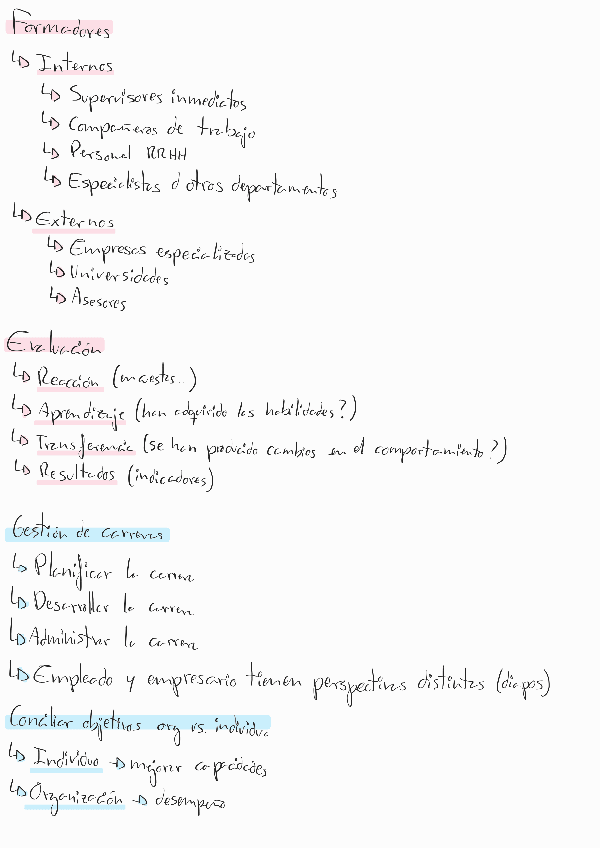 Formadores
↳ Internos
↳ Supervisores inmediatos
↳ Compañeros de trabajo
↳ Personal RRHH
↳ Especialistas d otros departamentos
↳ Externos
↳ Empresas especializadas
↳ Universidades
↳ Asesores
Evaluación
↳ Reacción (encuestas...)
↳ Aprendizaje (han adquirido las habilidades?)
↳ Transferencia (se han provocado cambios en el comportamiento?)
↳ Resultados (indicadores)
Gestión de carreras
↳ Planificar la carrera
↳ Desarrollar la carrera
↳ Administrar la carrera
↳ Empleado y empresario tienen perspectivas distintas (diapos)
Conciliar objetivos org vs. individuo
↳ Individuo → mejorar capacidades
↳ Organización → desempeño